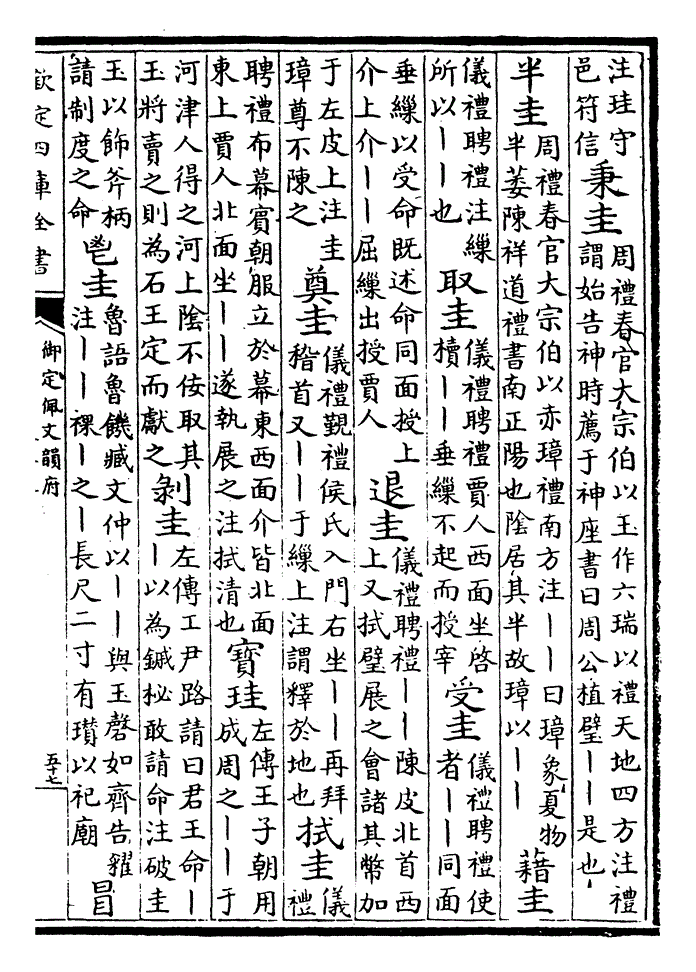 注珪守邑符信秉圭周禮春官大宗伯以玉作六瑞以禮天地四方注禮謂始告神時薦于神座書曰周公植璧丨丨是也
半圭周禮春官大宗伯以赤璋禮南方注丨丨曰璋象夏物半萎陳祥道禮書南正陽也陰居其半故璋以丨丨藉圭
儀禮聘禮注繅所以丨丨也取圭儀禮聘禮賈人西面坐啓櫝丨丨垂繅不起而授宰受圭儀禮聘禮使者丨丨同面
垂繅以受命既述命同面授上介上介丨丨屈繅出授賈人退圭儀禮聘禮丨丨陳皮北首西上又拭璧展之會諸其幣加
于左皮上注圭璋尊不陳之奠圭儀禮覲禮侯氏入門右坐丨丨再拜稽首又丨丨于繅上注謂釋於地也拭圭儀禮
聘禮布幕賓朝服立於幕東西面介皆北面東上賈人北面坐丨丨遂執展之注拭清也寶珪左傳王子朝用成周之丨丨于
河津人得之河上陰不佞取其玉將賣之則為石王定而獻之剝圭左傳工尹路請曰君王命丨丨以為鏚柲敢請命注破圭
玉以飾斧柄請制度之命鬯圭魯語魯饑臧文仲以丨丨與玉磬如齊告糴注丨丨祼之丨長尺二寸有瓚以祀廟冒
欽定四庫全書
御定佩文韻府
五十七